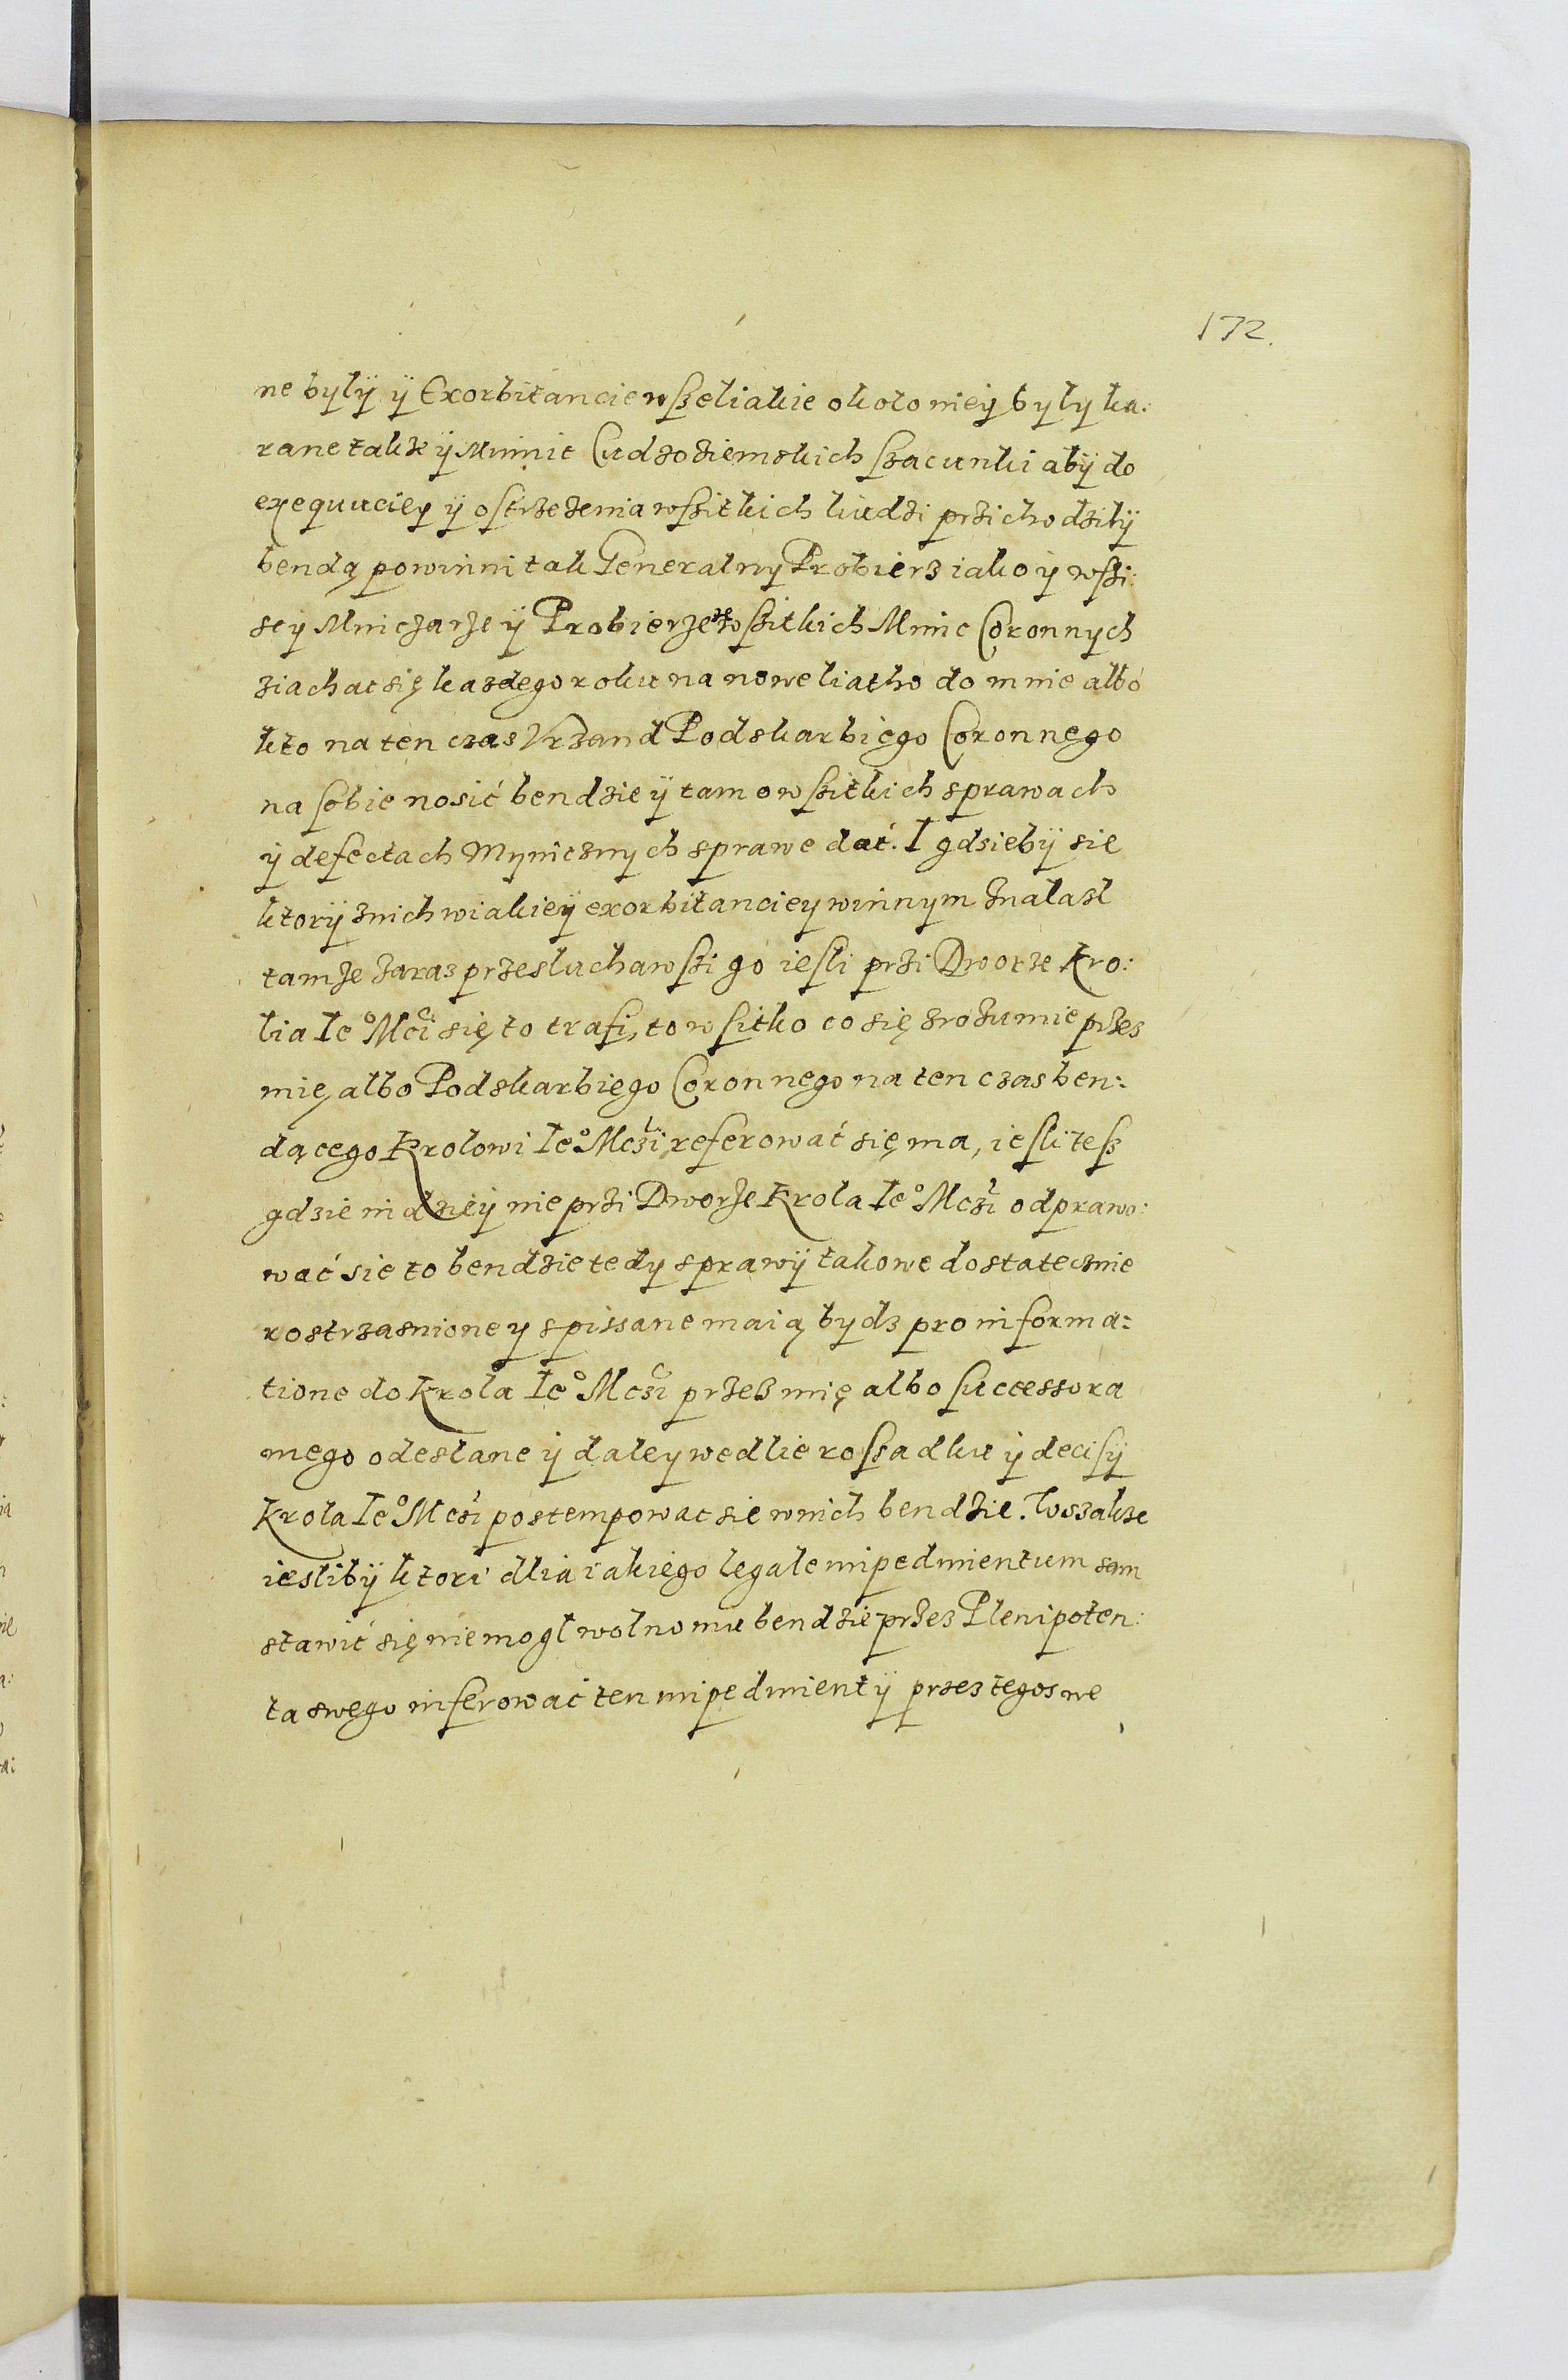 172.
ne byly ÿ Exorbitancie wszeliakie okolo niey byly ka:
rane takze ÿ Munic Cudzoziemskich szacunki abÿ do
exequuciey ÿ ostrzezenia wszitkich liudzi przichodzilÿ
bendą powinni tak Generalny Probierz iako ÿ wszi:
scÿ Mniczarze ÿ Probierze ze wszitkich Mnic Coronnych
ziachac się kazdego roku na nowe liatho do mnie albo
kto na ten czas Vrzand Podskarbięgo Coronnęgo
na sobie nosić bendzie ÿ tam o wszitkich sprawach
ÿ defectach Mynicznych sprawe dać. I gdziebÿ się
ktorÿ z nich w iakieÿ exorbitanciey winnym znalazl
tamze zaraz przesluchawszi go iesli przi Dworze Kro:
lia Ie° Mci się to trafi, to wsitko co się zrozumie przes
mię albo Podskarbięgo Coronnego na ten czas ben:
dącego Krolowi Ie° Mczi referować się ma, iesli tesz
gdzie indzieÿ nie przi Dworze Krola Ie° Mczi odprawo:
wać się to bendzie tedy sprawÿ takowe dostatecznie
rostrzasnione y spissane maią bydz pro informa:
tione do Krola Ie° Mczi przesz mię albo successora
mego odeslane ÿ daley wedlie rossadku ÿ decisÿ
Krola Ie° Mczi postempowac się w nich bendzie. Wszakze
ieslibÿ ktori dlia iakiego legale inpedmientum sam
stawić się nie mogl wolno mu bendzie przez Plenipoten:
ta swęgo inferować ten inpedmient ÿ przez tegos we